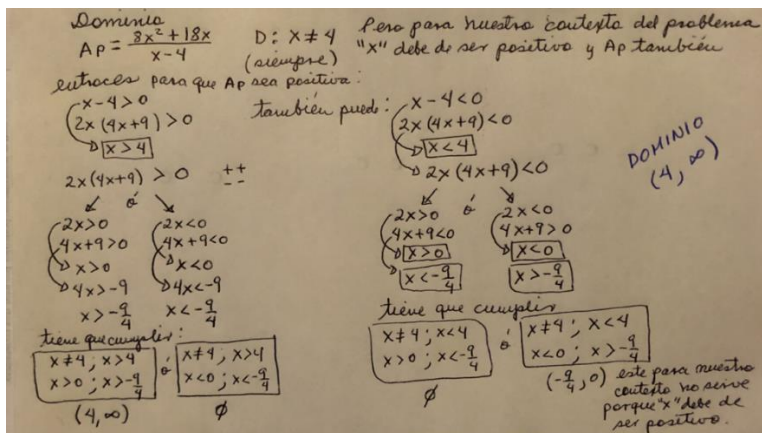 Dominio
Ap = 8x² + 18x / x - 4
D: x ≠ 4
(siempre)
Pero para nuestro contexto del problema
"x" debe de ser positivo y Ap también
entonces para que Ap sea positiva:
x - 4 > 0
2x (4x + 9) > 0
x > 4
2x (4x + 9) > 0
+ +
- -
ó
2x > 0
4x + 9 > 0
x > 0
4x > -9
x > -9/4
2x < 0
4x + 9 < 0
x < 0
4x < -9
x < -9/4
tiene que cumplir:
x ≠ 4 ; x > 4
x > 0 ; x > -9/4
(4, ∞)
ó
x ≠ 4 ; x > 4
x < 0 ; x < -9/4
∅
también puede:
x - 4 < 0
2x (4x + 9) < 0
x < 4
2x (4x + 9) < 0
ó
2x > 0
4x + 9 < 0
x > 0
x < -9/4
2x < 0
4x + 9 > 0
x < 0
x > -9/4
tiene que cumplir
x ≠ 4 ; x < 4
x > 0 ; x < -9/4
∅
ó
x ≠ 4 ; x < 4
x < 0 ; x > -9/4
(-9/4, 0)
este para nuestro
contexto no sirve
porque "x" debe de
ser positivo.
DOMINIO
(4, ∞)